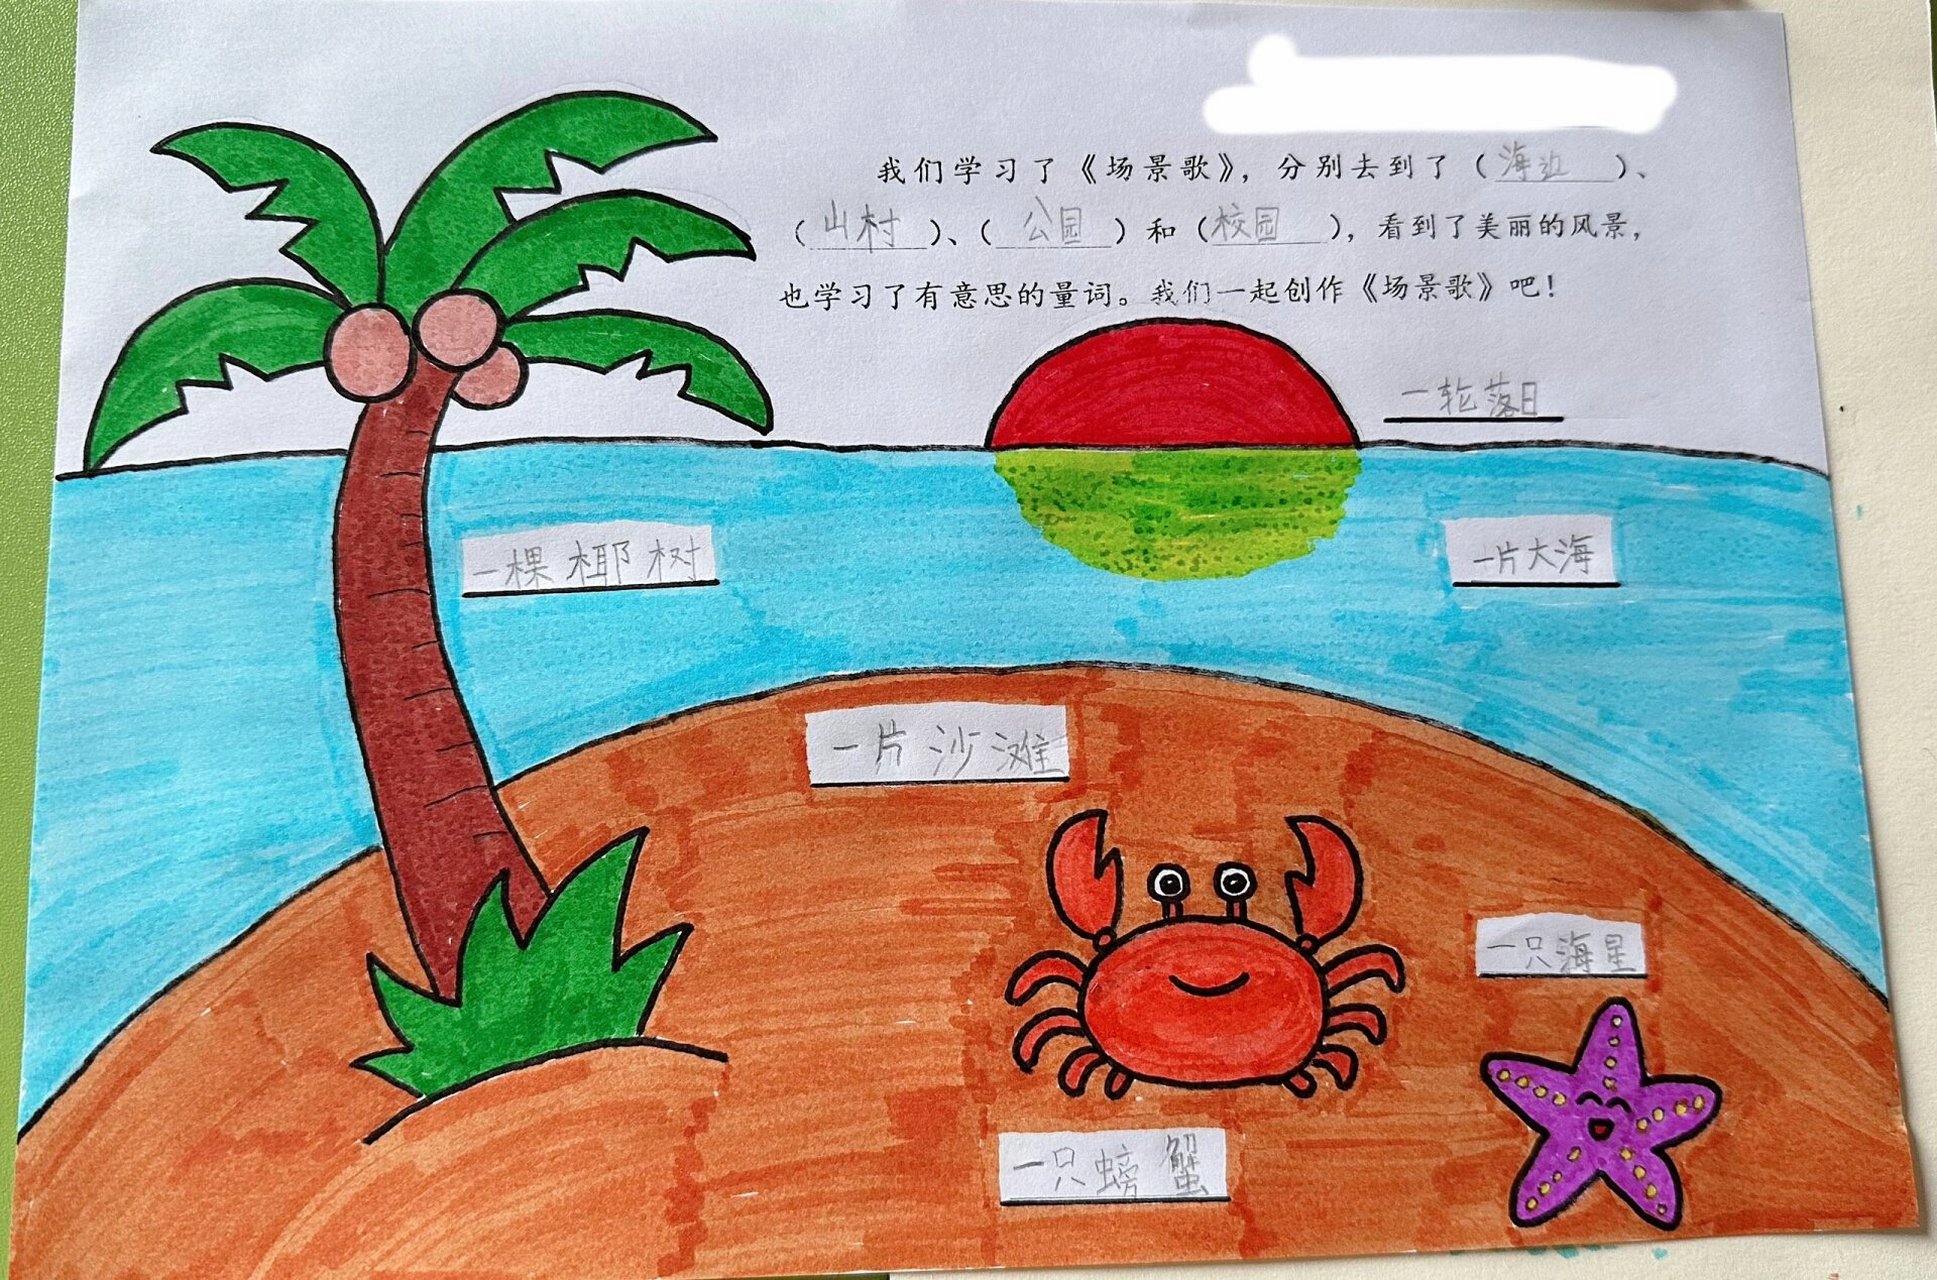 我们学习了《场景歌》，分别去到了（海边）、
（山村）、（公园）和（校园），看到了美丽的风景，
也学习了有意思的量词。我们一起创作《场景歌》吧！
一轮落日
一棵椰树
一片大海
一片沙滩
一只海星
一只螃蟹